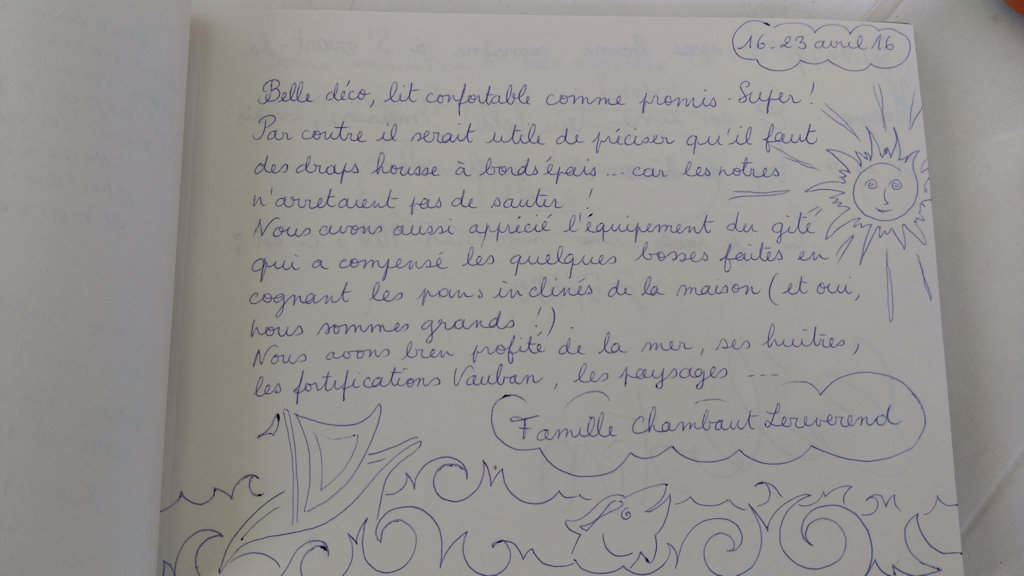 16-23 avril 16
Belle déco, lit confortable comme promis. Super !
Par contre il serait utile de préciser qu'il faut
des draps housse à bords épais... car les notres
n'arretaient pas de sauter !
Nous avons aussi apprécié l'équipement du gîté
qui a compensé les quelques bosses faites en
cognant les pans inclinés de la maison (et oui,
nous sommes grands !).
Nous avons bien profité de la mer, ses huîtres,
les fortifications Vauban, les paysages ---
Famille Chambaut Lereverend